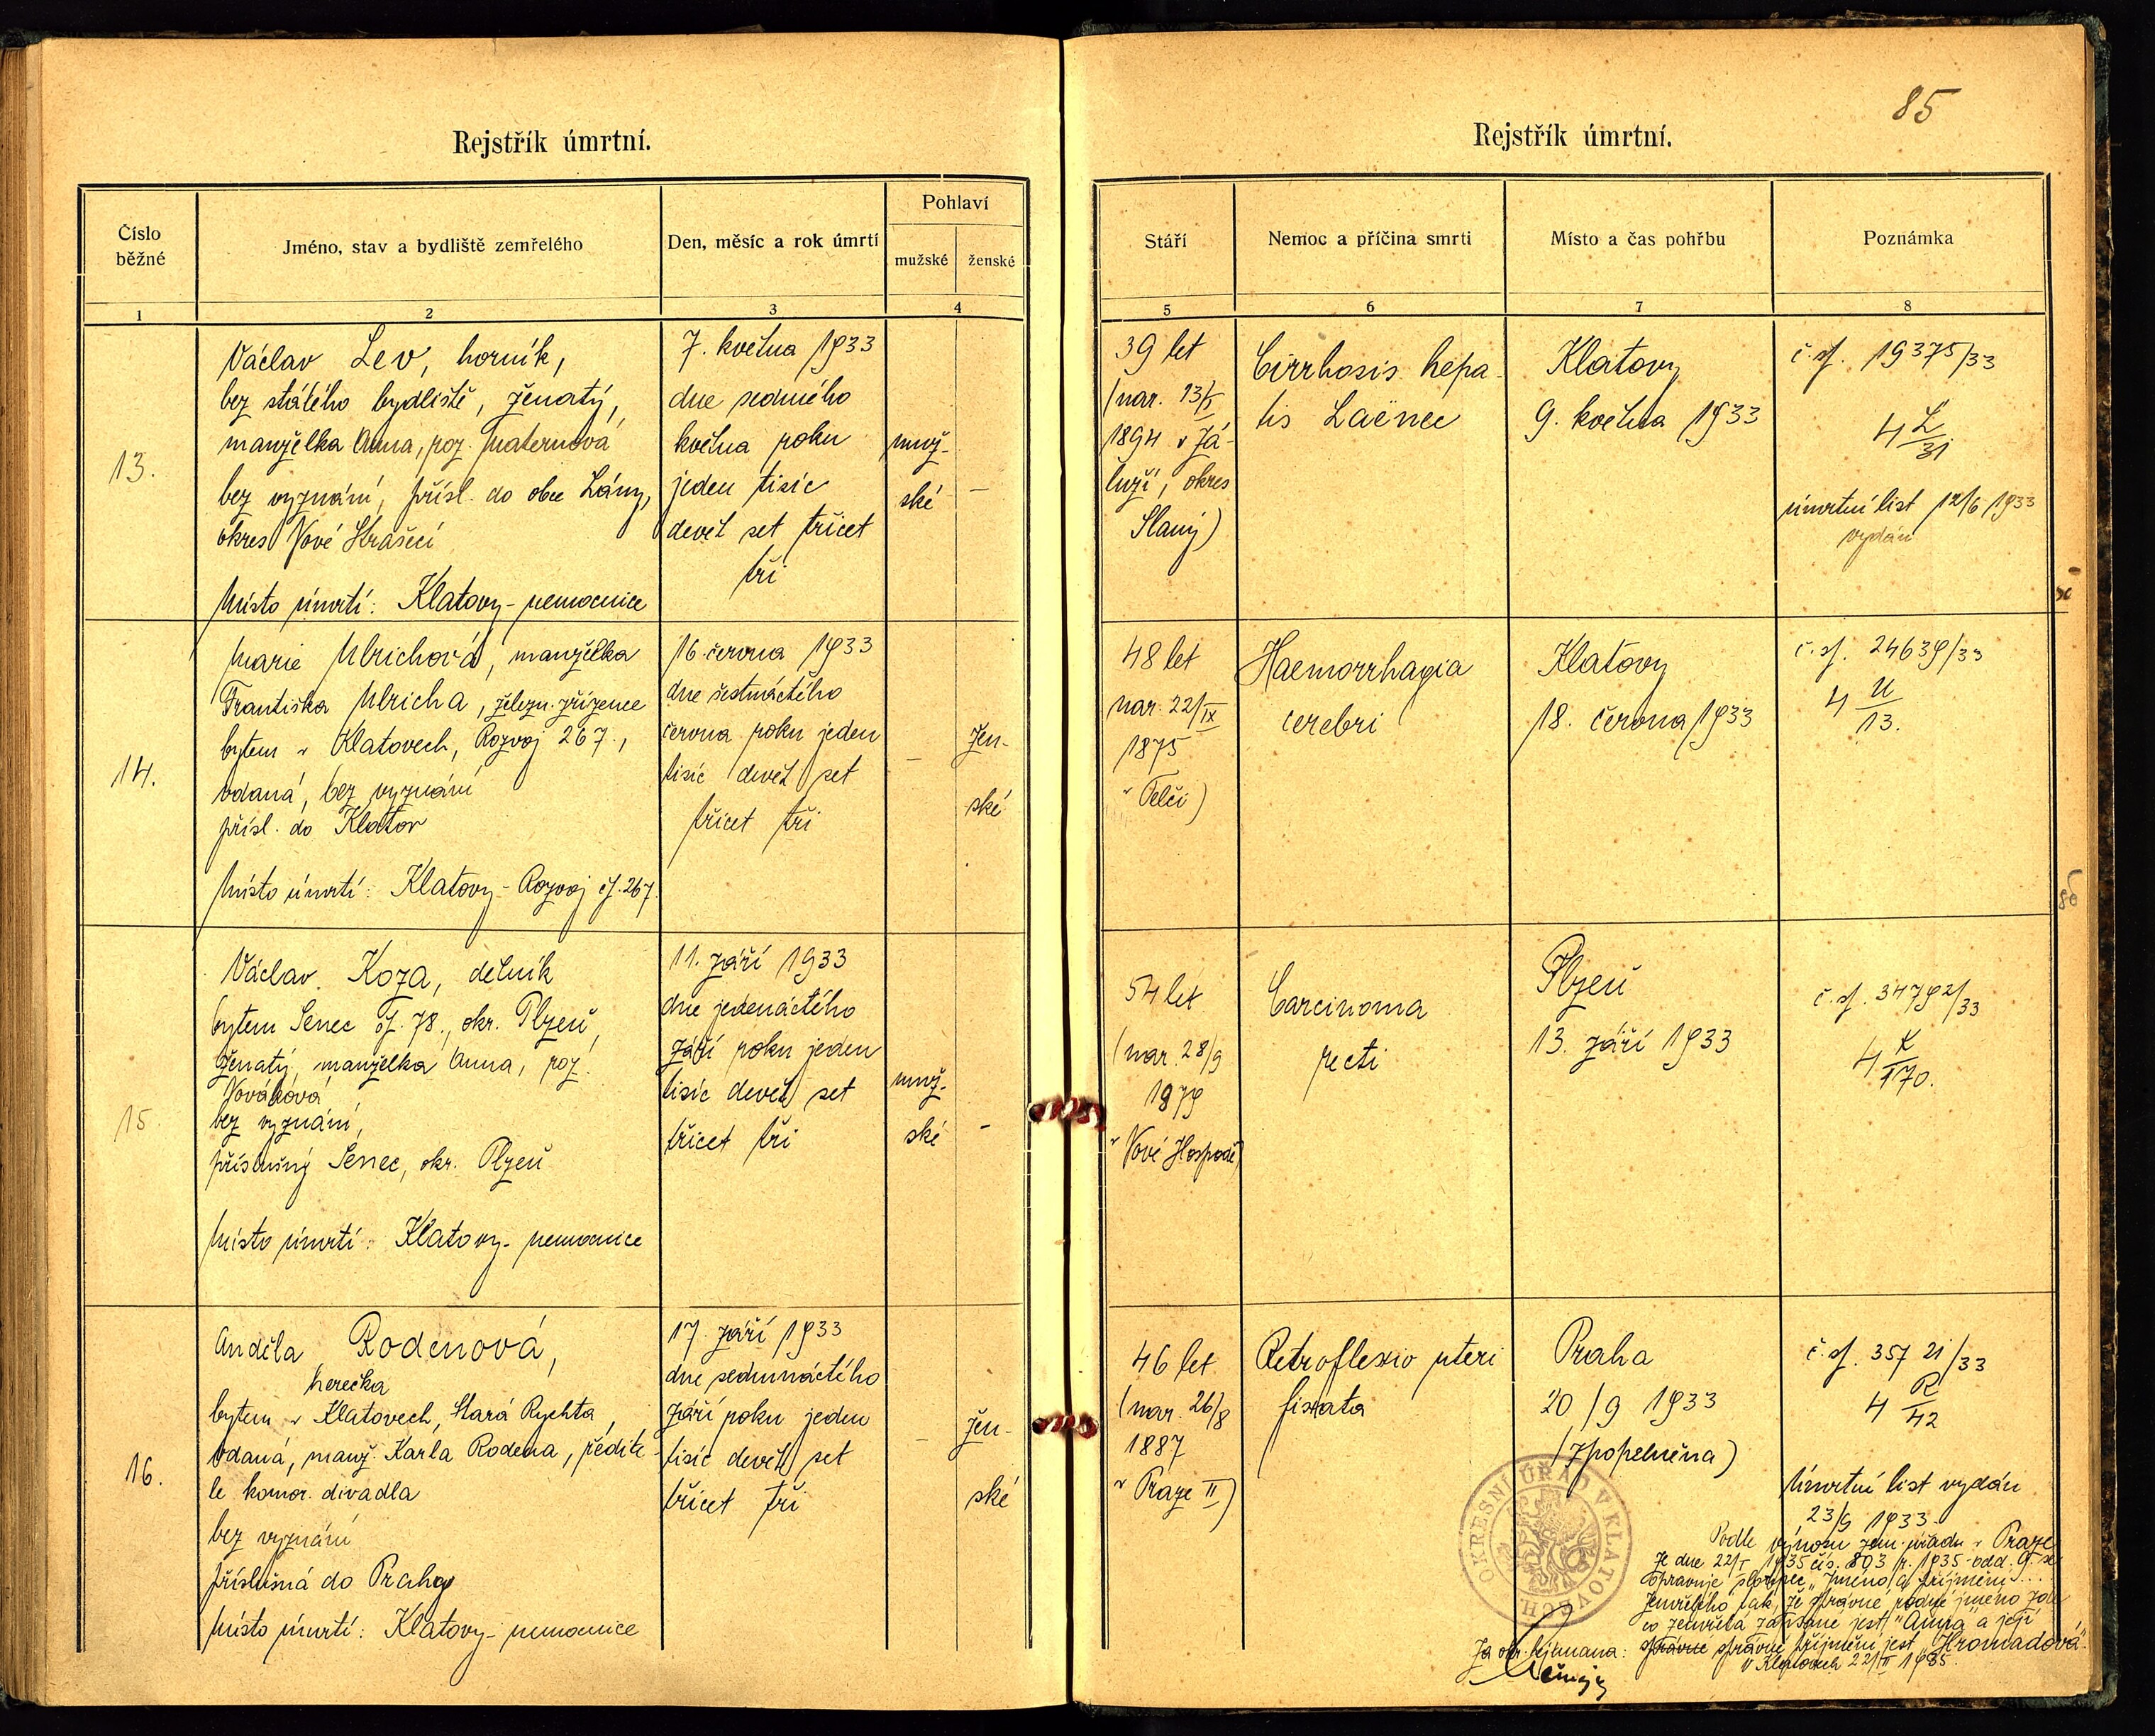 85
Rejstřík úmrtní.
Číslo běžné
Jméno, stav a bydliště zemřelého
Den, měsíc a rok úmrtí
Pohlaví
mužské
ženské
1
2
3
4
13.
Václav Lev, horník,
bez stálého bydliště, ženatý,
manželka Anna, roz. Maternová
bez vyznání, přísl. do obce Lány,
okres Nové Strašecí
Místo úmrtí: Klatovy - nemocnice
7. května 1933
dne sedmého
května roku
jeden tisíc
devět set třicet
tři
muž-
ské
–
14.
Marie Ulrichová, manželka
Františka Ulricha, železn. zřízence
bytem v Klatovech, Rozvoj 267.,
vdaná, bez vyznání
přísl. do Klatov
Místo úmrtí: Klatovy - Rozvoj čp. 267.
16. června 1933
dne šestnáctého
června roku jeden
tisíc devět set
třicet tři
–
žen-
ské
15.
Václav Koza, dělník
bytem Senec čp. 78., okr. Plzeň,
ženatý, manželka Anna, roz.
Nováková
bez vyznání,
příslušný Senec, okr. Plzeň
Místo úmrtí: Klatovy - nemocnice
11. září 1933
dne jedenáctého
září roku jeden
tisíc devět set
třicet tři
muž-
ské
-
16.
Anděla Rodenová,
herečka
bytem v Klatovech, Stará Rychta,
vdaná, manž. Karla Rodena, ředite-
le komor. divadla
bez vyznání
příslušná do Prahy
Místo úmrtí: Klatovy - nemocnice
17. září 1933
dne sedmnáctého
září roku jeden
tisíc devět set
třicet tři
–
žen-
ské
Rejstřík úmrtní.
Stáří
Nemoc a příčina smrti
Místo a čas pohřbu
Poznámka
5
6
7
8
39 let
1894 v Zá-
luží, okres
Slaný)
Cirrhosis hepa-
tis Laënec
Klatovy
9. května 1933
č. j. 19375/33
4 L/31
úmrtní list 12/6 1933
vydán
48 let
nar. 22/IX
1875
v Telči)
Haemorrhagia
cerebri
Klatovy
18. června 1933
č. j. 24639/33
4 U/13.
54 let
(nar. 28/9
1879
v Nové Hospodě)
Carcinoma
recti
Plzeň
13. září 1933
č. j. 34792/33
4 K/170.
46 let
(nar. 26/8
1887
v Praze II)
Retroflexio uteri
fixata
Praha
20/9 1933
(zpopelněna)
č. j. 35721/33
4 R/42
Úmrtní list vydán
23/9 1933.
Podle výnosu zem. úřadu v Praze
ze dne 22/I 1935 čís. 803 r. 1935 - odd. 9. se
opravuje sloupec "Jméno a příjmení ...
zemřelého tak, že správné rodné jméno
co zemřelá zapsané jest "Anna" a její
správné správné příjmení jest "Hromadová".
V Klatovech 22/II 1935.
Za okr. hejtmana:
OKRESNÍ ÚŘAD V KLATOVECH